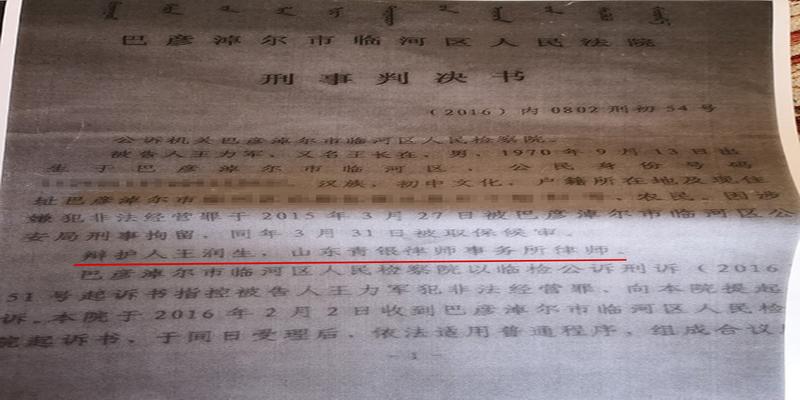 巴彦淖尔市临河区人民法院
刑事判决书
(2016)内0802刑初54号
公诉机关巴彦淖尔市临河区人民检察院。
被告人王力军,又名王长在,男,1970年9月13日出
生于巴彦淖尔市临河区,公民身份号码
汉族,初中文化,户籍所在地及现住
址巴彦淖尔市 农民。因涉
嫌犯非法经营罪于2015年3月27日被巴彦淖尔市临河区公
安局刑事拘留,同年3月31日被取保候审。
辩护人王润生,山东青银律师事务所律师。
巴彦淖尔市临河区人民检察院以临检公诉刑诉(2016
51号起诉书指控被告人王力军犯非法经营罪,向本院提起
诉。本院于2016年2月2日收到巴彦淖尔市临河区人民检
院起诉书,于同日受理后,依法适用普通程序,组成合议
- 1 -